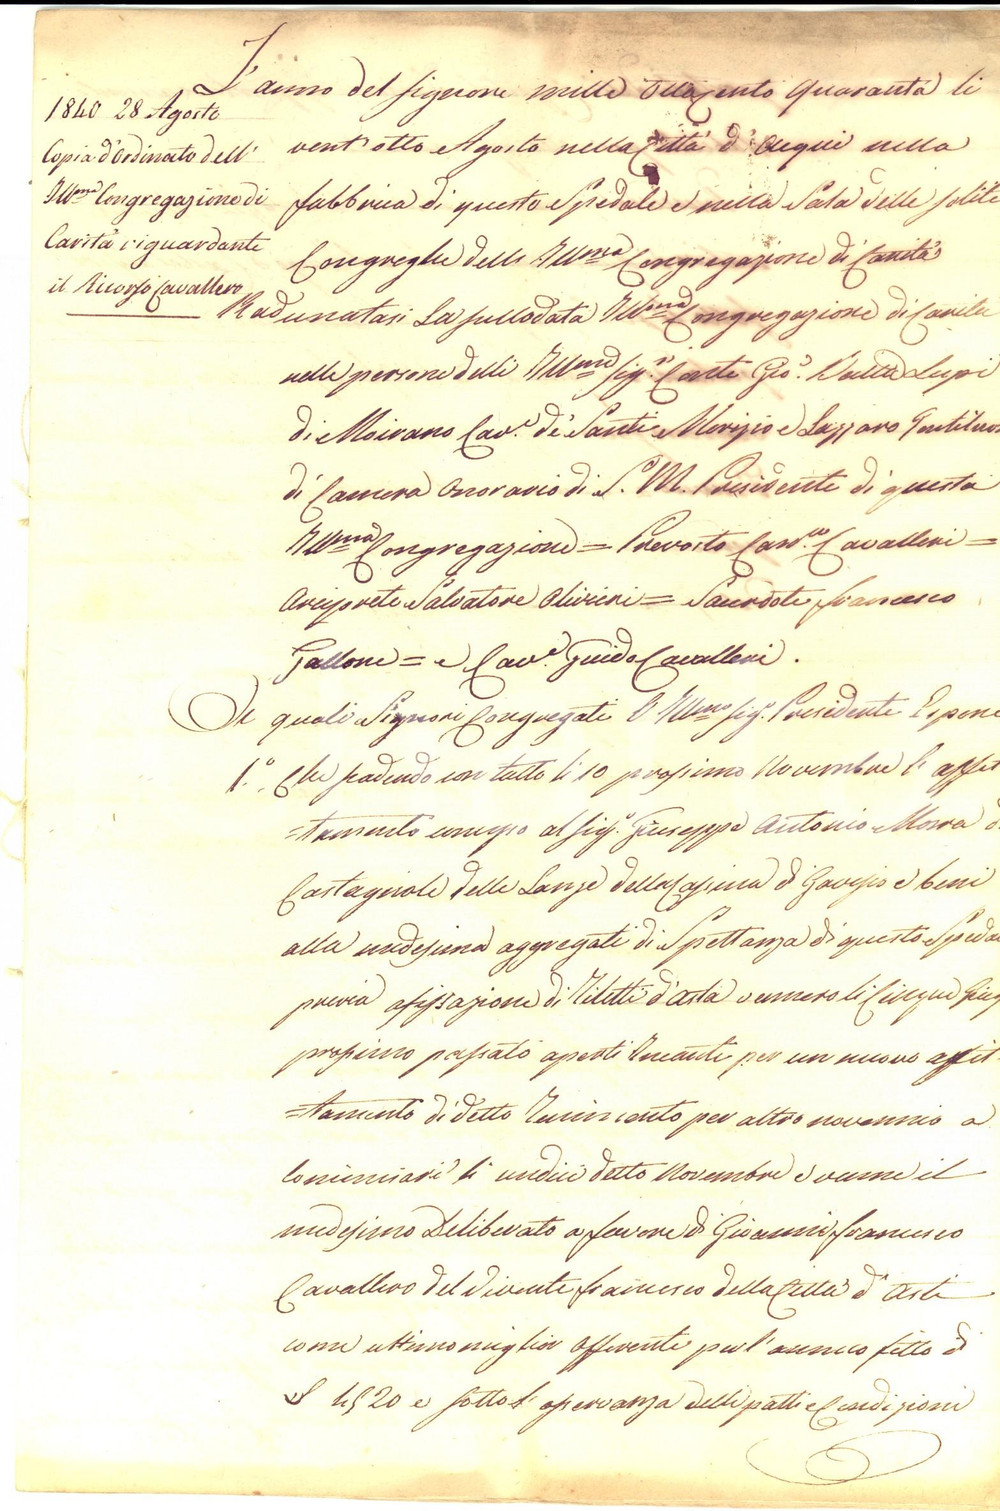 1840 28 Agosto
Copia d'Ordinato dell'
Ill.ma Congregazione di
Carità riguardante
il Ricorso Cavallero
L'anno del signore mille ottocento quaranta li
vent'otto Agosto nella Città d'Acqui nella
fabbrica di questo Spedale e nella Sala delle solite
Congreghe della Ill.ma Congregazione di Carità
Radunatasi La sullodata Ill.ma Congregazione di Carità
nelle persone delli Ill.mi Sig.i Conte Gio. Batta Lupi
di Moirano Cav.e de' Santi Morizio e Lazzaro Gentiluo
di Camera onorario di S. M. Presidente di questa
Ill.ma Congregazione = Prevosto Can.co Cavalleri =
Arciprete Salvatore Olivieri = Sacerdote francesco
Gallone = e Cav.e Guido Cavalleri .
Ai quali Signori Congregati l'Ill.mo Sig. Presidente Espone
1.o Che scadendo con tutto li 10 prossimo Novembre l'affit
=tamento concesso al Sig.r Giuseppe Antonio Morra d
Castagnole delle Lanze della Cassina di Gavesio e beni
alla medesima aggregati di Spettanza di questo Speda
previa affissazione di Tiletti d'asta vennero li Cinque Giug
prossimo passato aperti Incanti per un nuovo affit
=tamento di detto Tenimento per altro novennio a
cominciare li undici detto Novembre e venne il
medesimo Deliberato a favore di Giovanni francesco
Cavallero del vivente francesco della Città d'Asti
come ultimo miglior offerente per l'annuo fitto di
£ 4520 e sotto l'osservanza delli patti e Condizioni